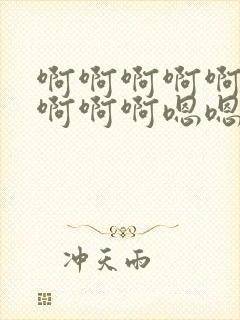 啊啊啊啊啊
啊啊啊嗯嗯
冲天雨